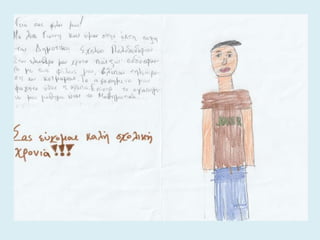 Γεια σας φίλοι μου!
Με λένε Γιάννη και είμαι στην έκτη τάξη
του Δημοτικού Σχολείου
Στον ελεύθερο μου χρόνο παίζω ποδόσφαιρο
με τους φίλους μου, βλέπω τηλεόραση
και Το αγαπημένο μου
φαγητό είναι η πίτσα. Επίσης το αγαπημένο
μου μάθημα είναι τα Μαθηματικά.
Σας εύχομαι καλή σχολική
χρονιά!!!